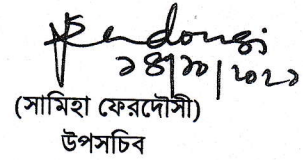 ১৪/১০/২০২১
(সামিহা ফেরদৌসী)
উপসচিব